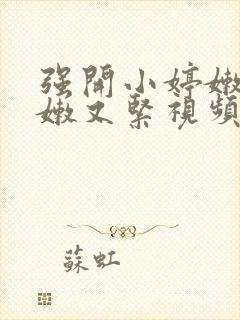 强開小婷嫩
嫩又緊視頻
蘇虹